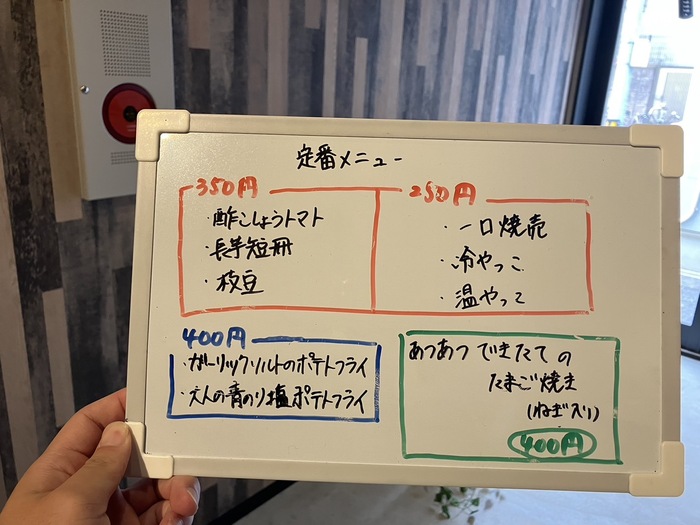 定番メニュー
350円
・酢こしょうトマト
・長芋短冊
・枝豆
250円
・一口焼売
・冷やっこ
・温やっこ
400円
・ガーリックソルトのポテトフライ
・大人の青のり塩ポテトフライ
あつあつできたての
たまご焼き
(ねぎ入り)
400円